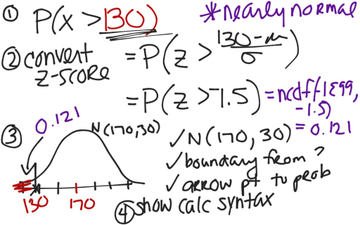 ① P(x > 130)
*nearly normal
② convert z-score
= P(z > 130-m/σ)
= P(z > 1.5)
= ncdf(-1E99, -1.5)
= 0.121
③ 0.121
N(170,30)
130
170
✓ N(170, 30)
✓ boundary from ?
✓ arrow pt to prob
④ show calc syntax